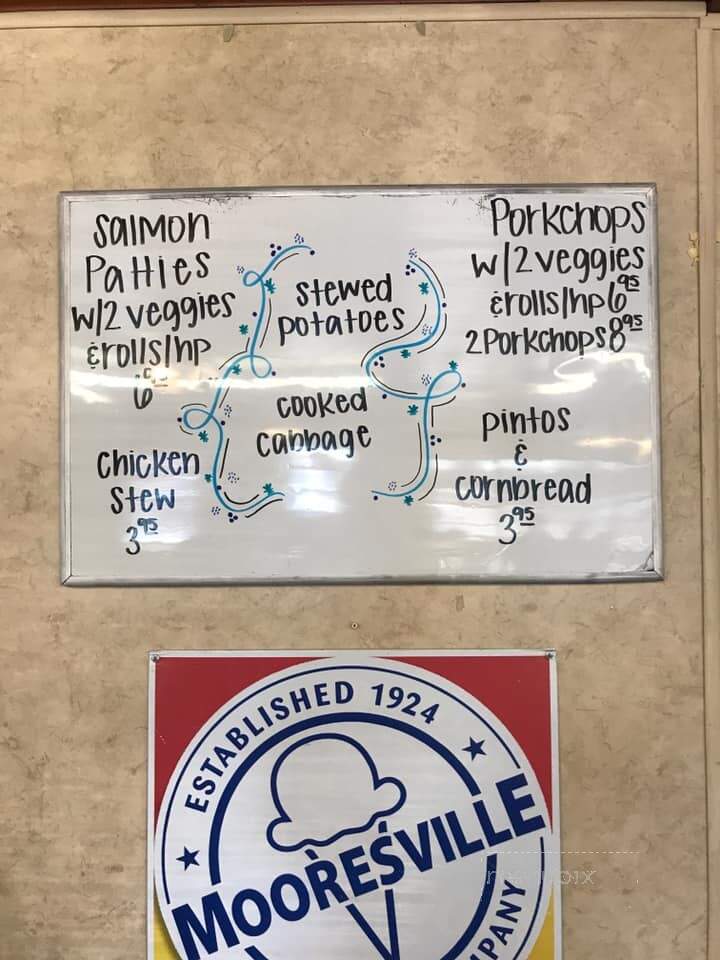 Salmon
Patties
w/2 veggies
& rolls/hp
6
chicken
stew
3.95
stewed
potatoes
cooked
cabbage
Porkchops
w/2 veggies
& rolls/hp 6.95
2 Porkchops 8.95
pintos
&
cornbread
3.95
ESTABLISHED 1924
MOORESVILLE